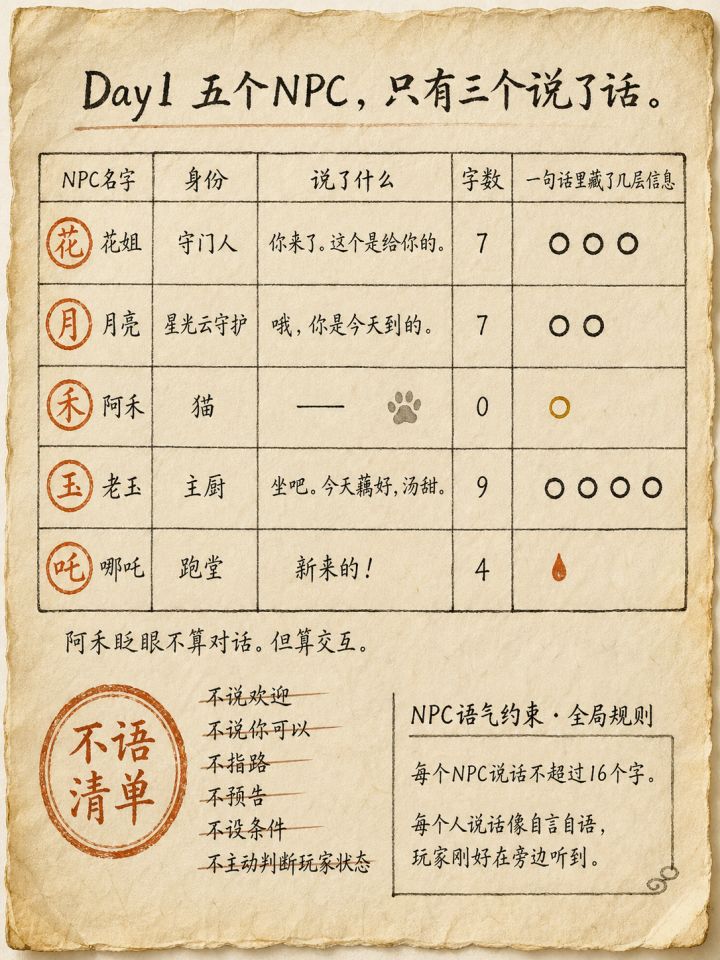 Day1 五个NPC，只有三个说了话。
NPC名字 身份 说了什么 字数 一句话里藏了几层信息
花 花姐 守门人 你来了。这个是给你的。 7
月 月亮 星光云守护 哦，你是今天到的。 7
禾 阿禾 猫 —— 0
玉 老玉 主厨 坐吧。今天藕好，汤甜。 9
吒 哪吒 跑堂 新来的！ 4
阿禾眨眼不算对话。但算交互。
不语
清单
不说欢迎
不说你可以
不指路
不预告
不设条件
不主动判断玩家状态
NPC语气约束·全局规则
每个NPC说话不超过16个字。
每个人说话像自言自语，
玩家刚好在旁边听到。